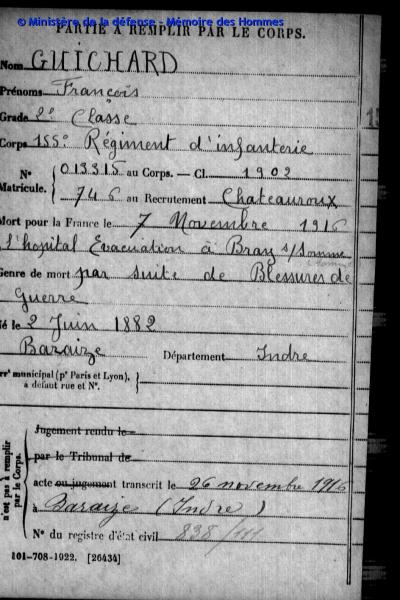 © Ministère de la défense - Mémoire des Hommes
PARTIE A REMPLIR PAR LE CORPS.
Nom GUICHARD
Prénoms François
Grade 2e Classe
Corps 155e Régiment d'infanterie
N° Matricule. { 013315 au Corps. — Cl. 1902
746 au Recrutement Chateauroux
Mort pour la France le 7 Novembre 1916
l'hopital Evacuation à Bray s/Somme
Genre de mort par suite de Blessures de
Guerre
né le 2 Juin 1882
Baraize Département Indre
arrt municipal (pr Paris et Lyon), à défaut rue et N°. }
n'est pas à remplir par le Corps. {
Jugement rendu le
par le Tribunal de
acte ou jugement transcrit le 26 novembre 1916
à Baraize (Indre)
N° du registre d'état civil 838/111
101-708-1922. [26434]